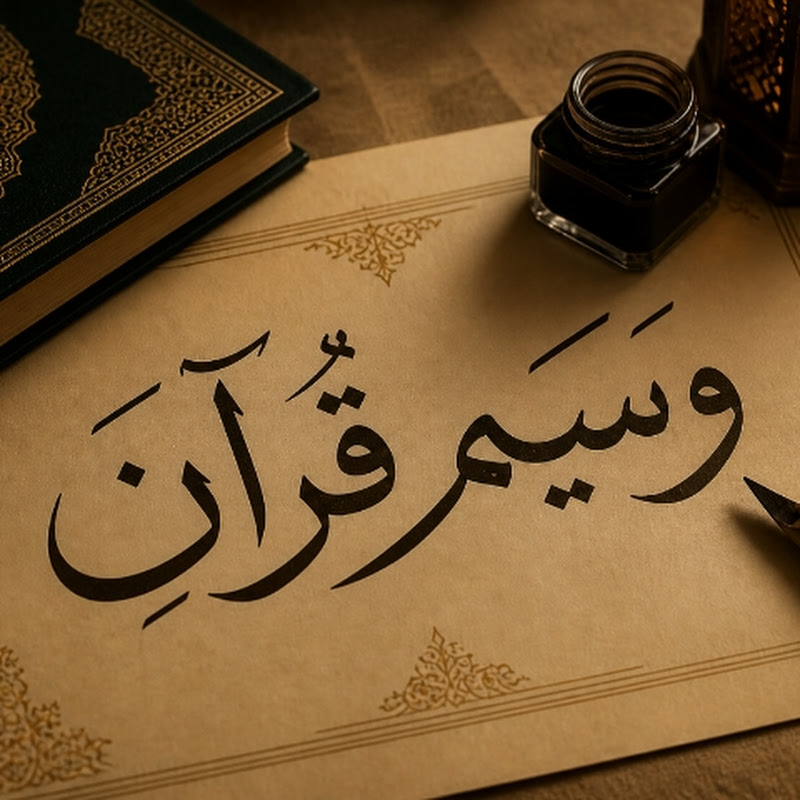 وَسَيم قُرآنَِ